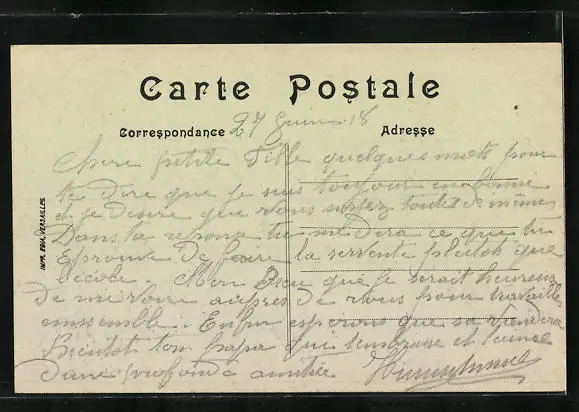 Carte Postale
Correspondance 27 Juin 18 Adresse
Chere petite Fille quelques mots pour
te dire que je suis toujour en bonne
et je desire que vous soyez toute de meme
Dans ta reponse tu me dira ce que tu
Eprouve De faire la servente plutot que
l'ecole. Mon Dieu que je serait heureux
de me voire aupres de vous pour travaille
emssemble. Enfin esperons que sa viendera
Bientot ton papa qui t'embrasse et
D'une profonde amitiee
IMP. EDIA, VERSAILLES.